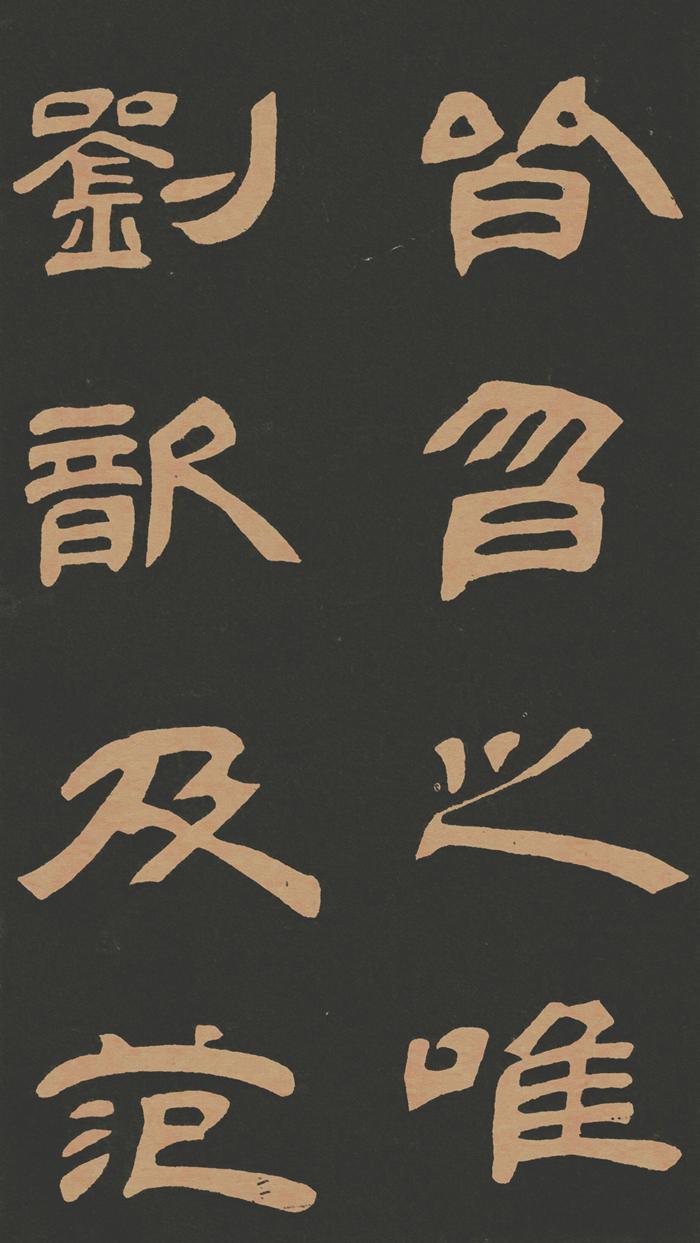 皆曶之唯
劉歆及范